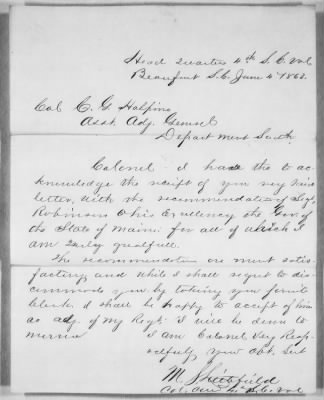 Head Quarters 4th S.C. Vol
Beaufort S.C. June 4" 1863.
Col C. G. Halpine
Asst. Adj. General
Department South.
Colonel I have the to ac-
knowledge the receipt of your very kind
letter, with the recommendation of
Robinson & his Excellency the Gov. of
the State of Maine for all of which I
am Truly gratefull.
The recommendations are most satis-
factory, and while I shall regret to dis-
commode you by taking your
I shall be happy to accept of him
as adj. of my Regt. I will be down to
morrow I am Colonel Very Resp-
ectfully, your Obt. Servt
M. Littlefield
Col. 4th S.C. Vol